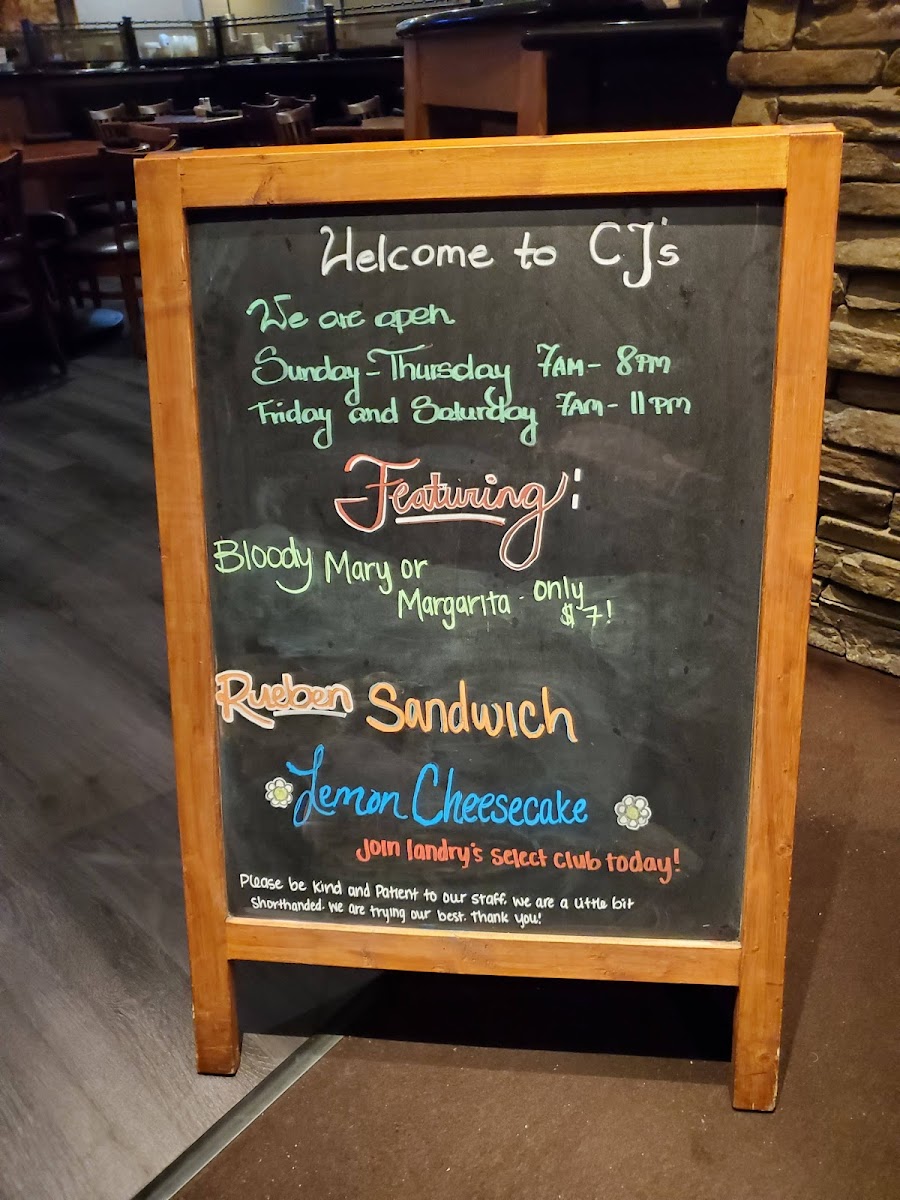 Welcome to CJ's
We are open
Sunday - Thursday 7AM - 8PM
Friday and Saturday 7AM - 11PM
Featuring:
Bloody Mary or
Margarita - only
$7!
Rueben Sandwich
Lemon Cheesecake
Join landry's select club today!
Please be kind and Patient to our staff. we are a little bit
shorthanded. we are trying our best. thank you!